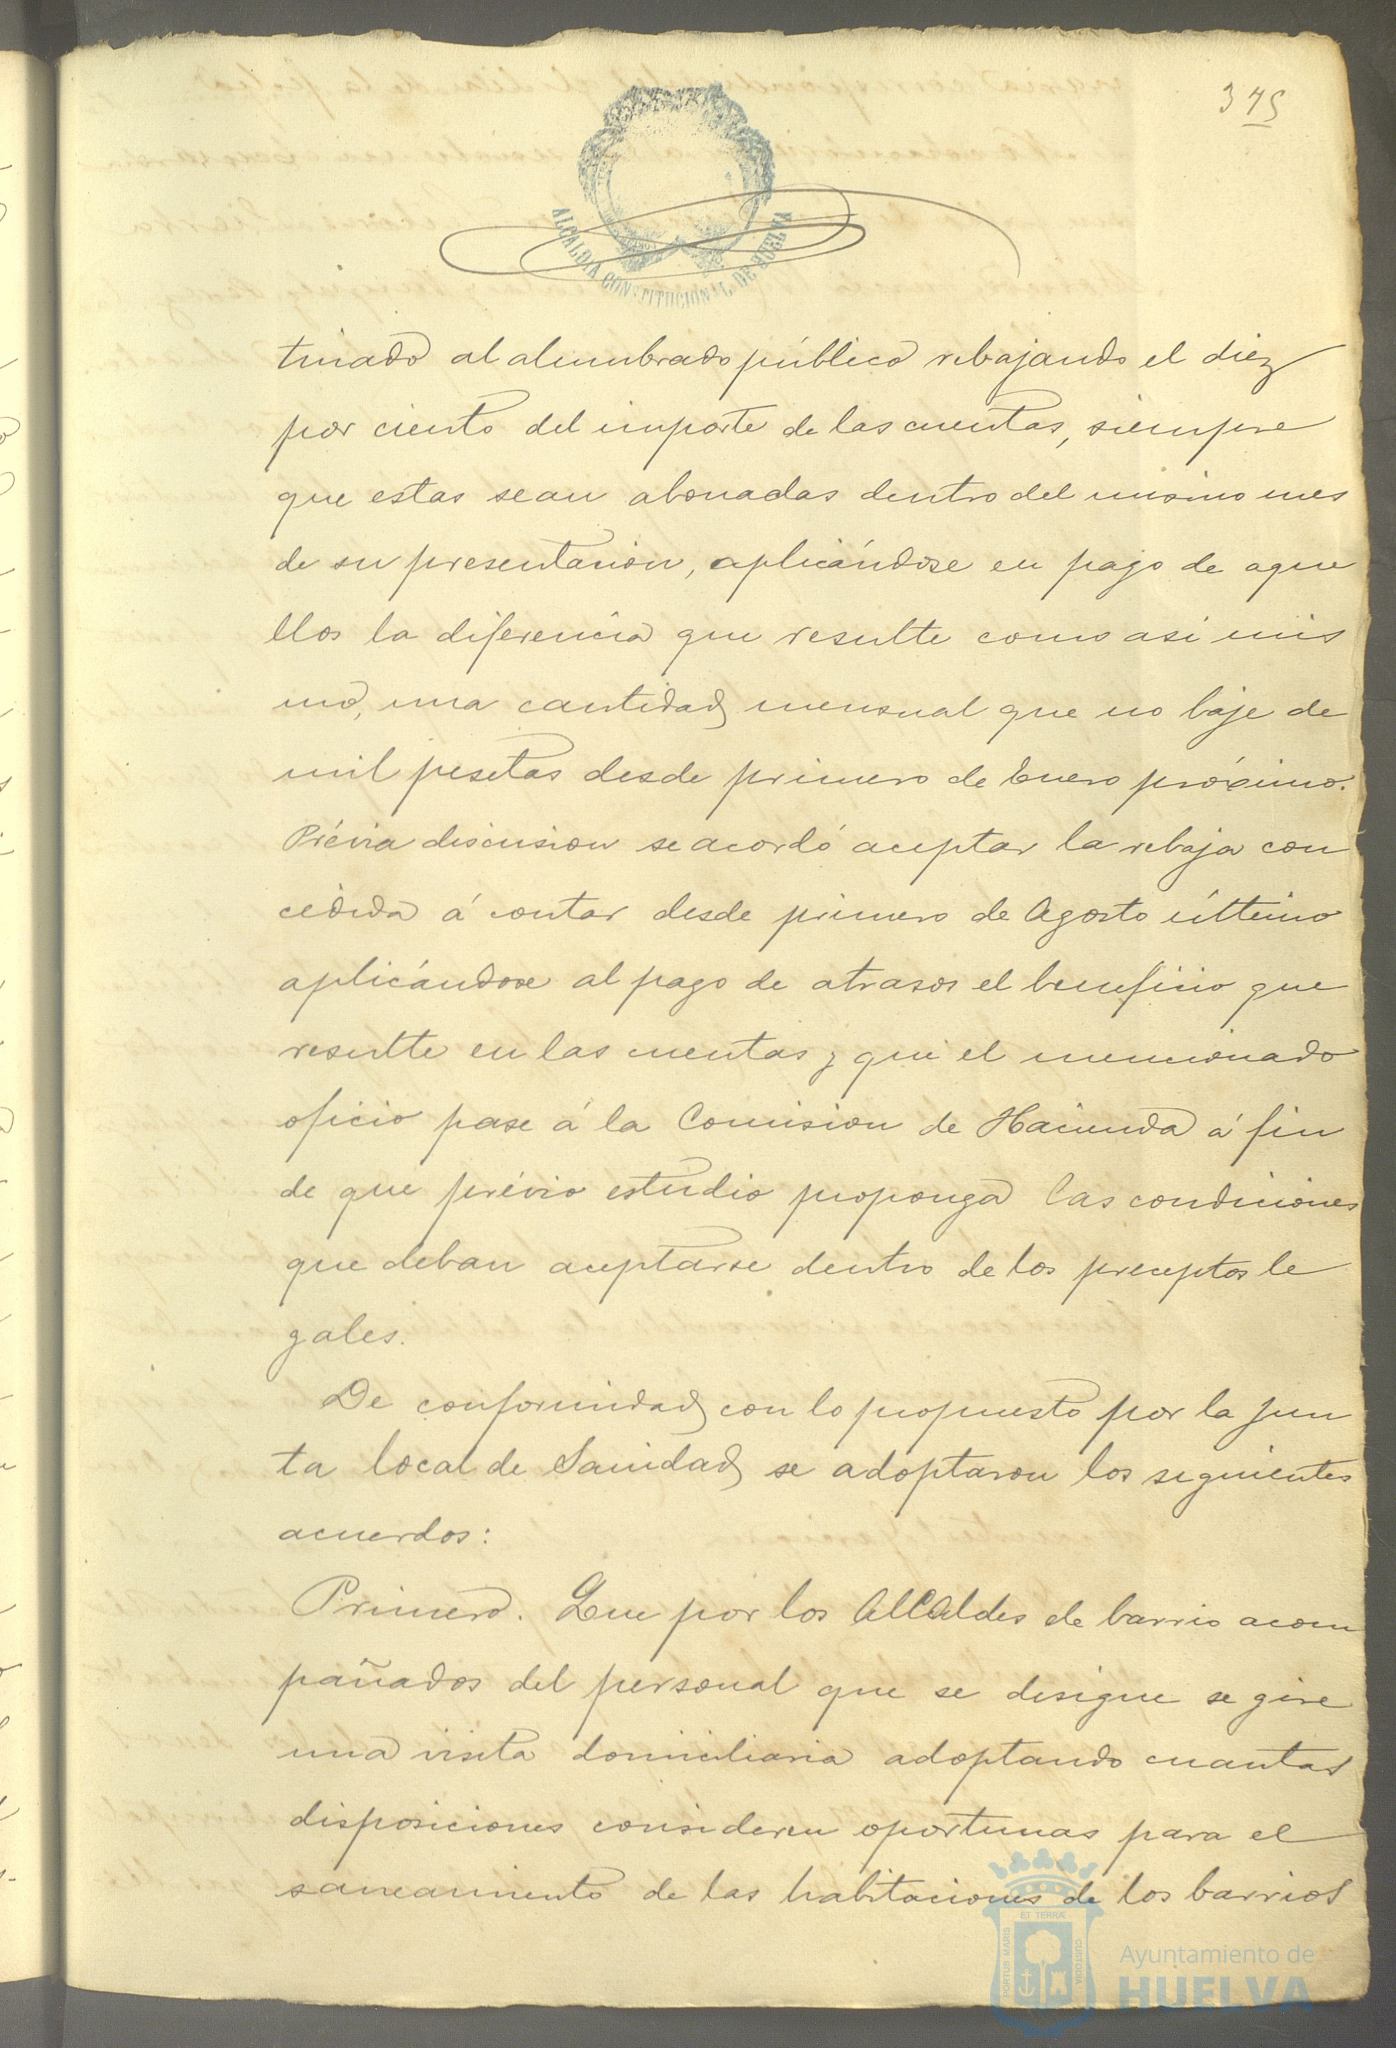 375
ALCALDIA CONSTITUCIONAL DE HUELVA
tinado al alumbrado público rebajando el diez
por ciento del importe de las cuentas, siempre
que estas sean abonadas dentro del mismo mes
de su presentacion, aplicándose en pago de aque
llos la diferencia que resulte como asi mis
mo, una cantidad mensual que no baje de
mil pesetas desde primero de Enero próximo.
Prévia discusion se acordó aceptar la rebaja con
cedida á contar desde primero de Agosto último
aplicándose al pago de atrasos el beneficio que
resulte en las cuentas y que el mencionado
oficio pase á la Comision de Hacienda á fin
de que prévio estudio proponga las condiciones
que deban aceptarse dentro de los preceptos le
gales.
De conformidad con lo propuesto por la jun
ta local de Sanidad se adoptaron los siguientes
acuerdos:
Primero. Que por los Alcaldes de barrio acom
pañados del personal que se designe se gire
una visita domiciliaria adoptando cuantas
disposiciones consideren oportunas para el
saneamiento de las habitaciones de los barrios
PORTUS MARIS ET TERRÆ CUSTODIA
Ayuntamiento de
HUELVA